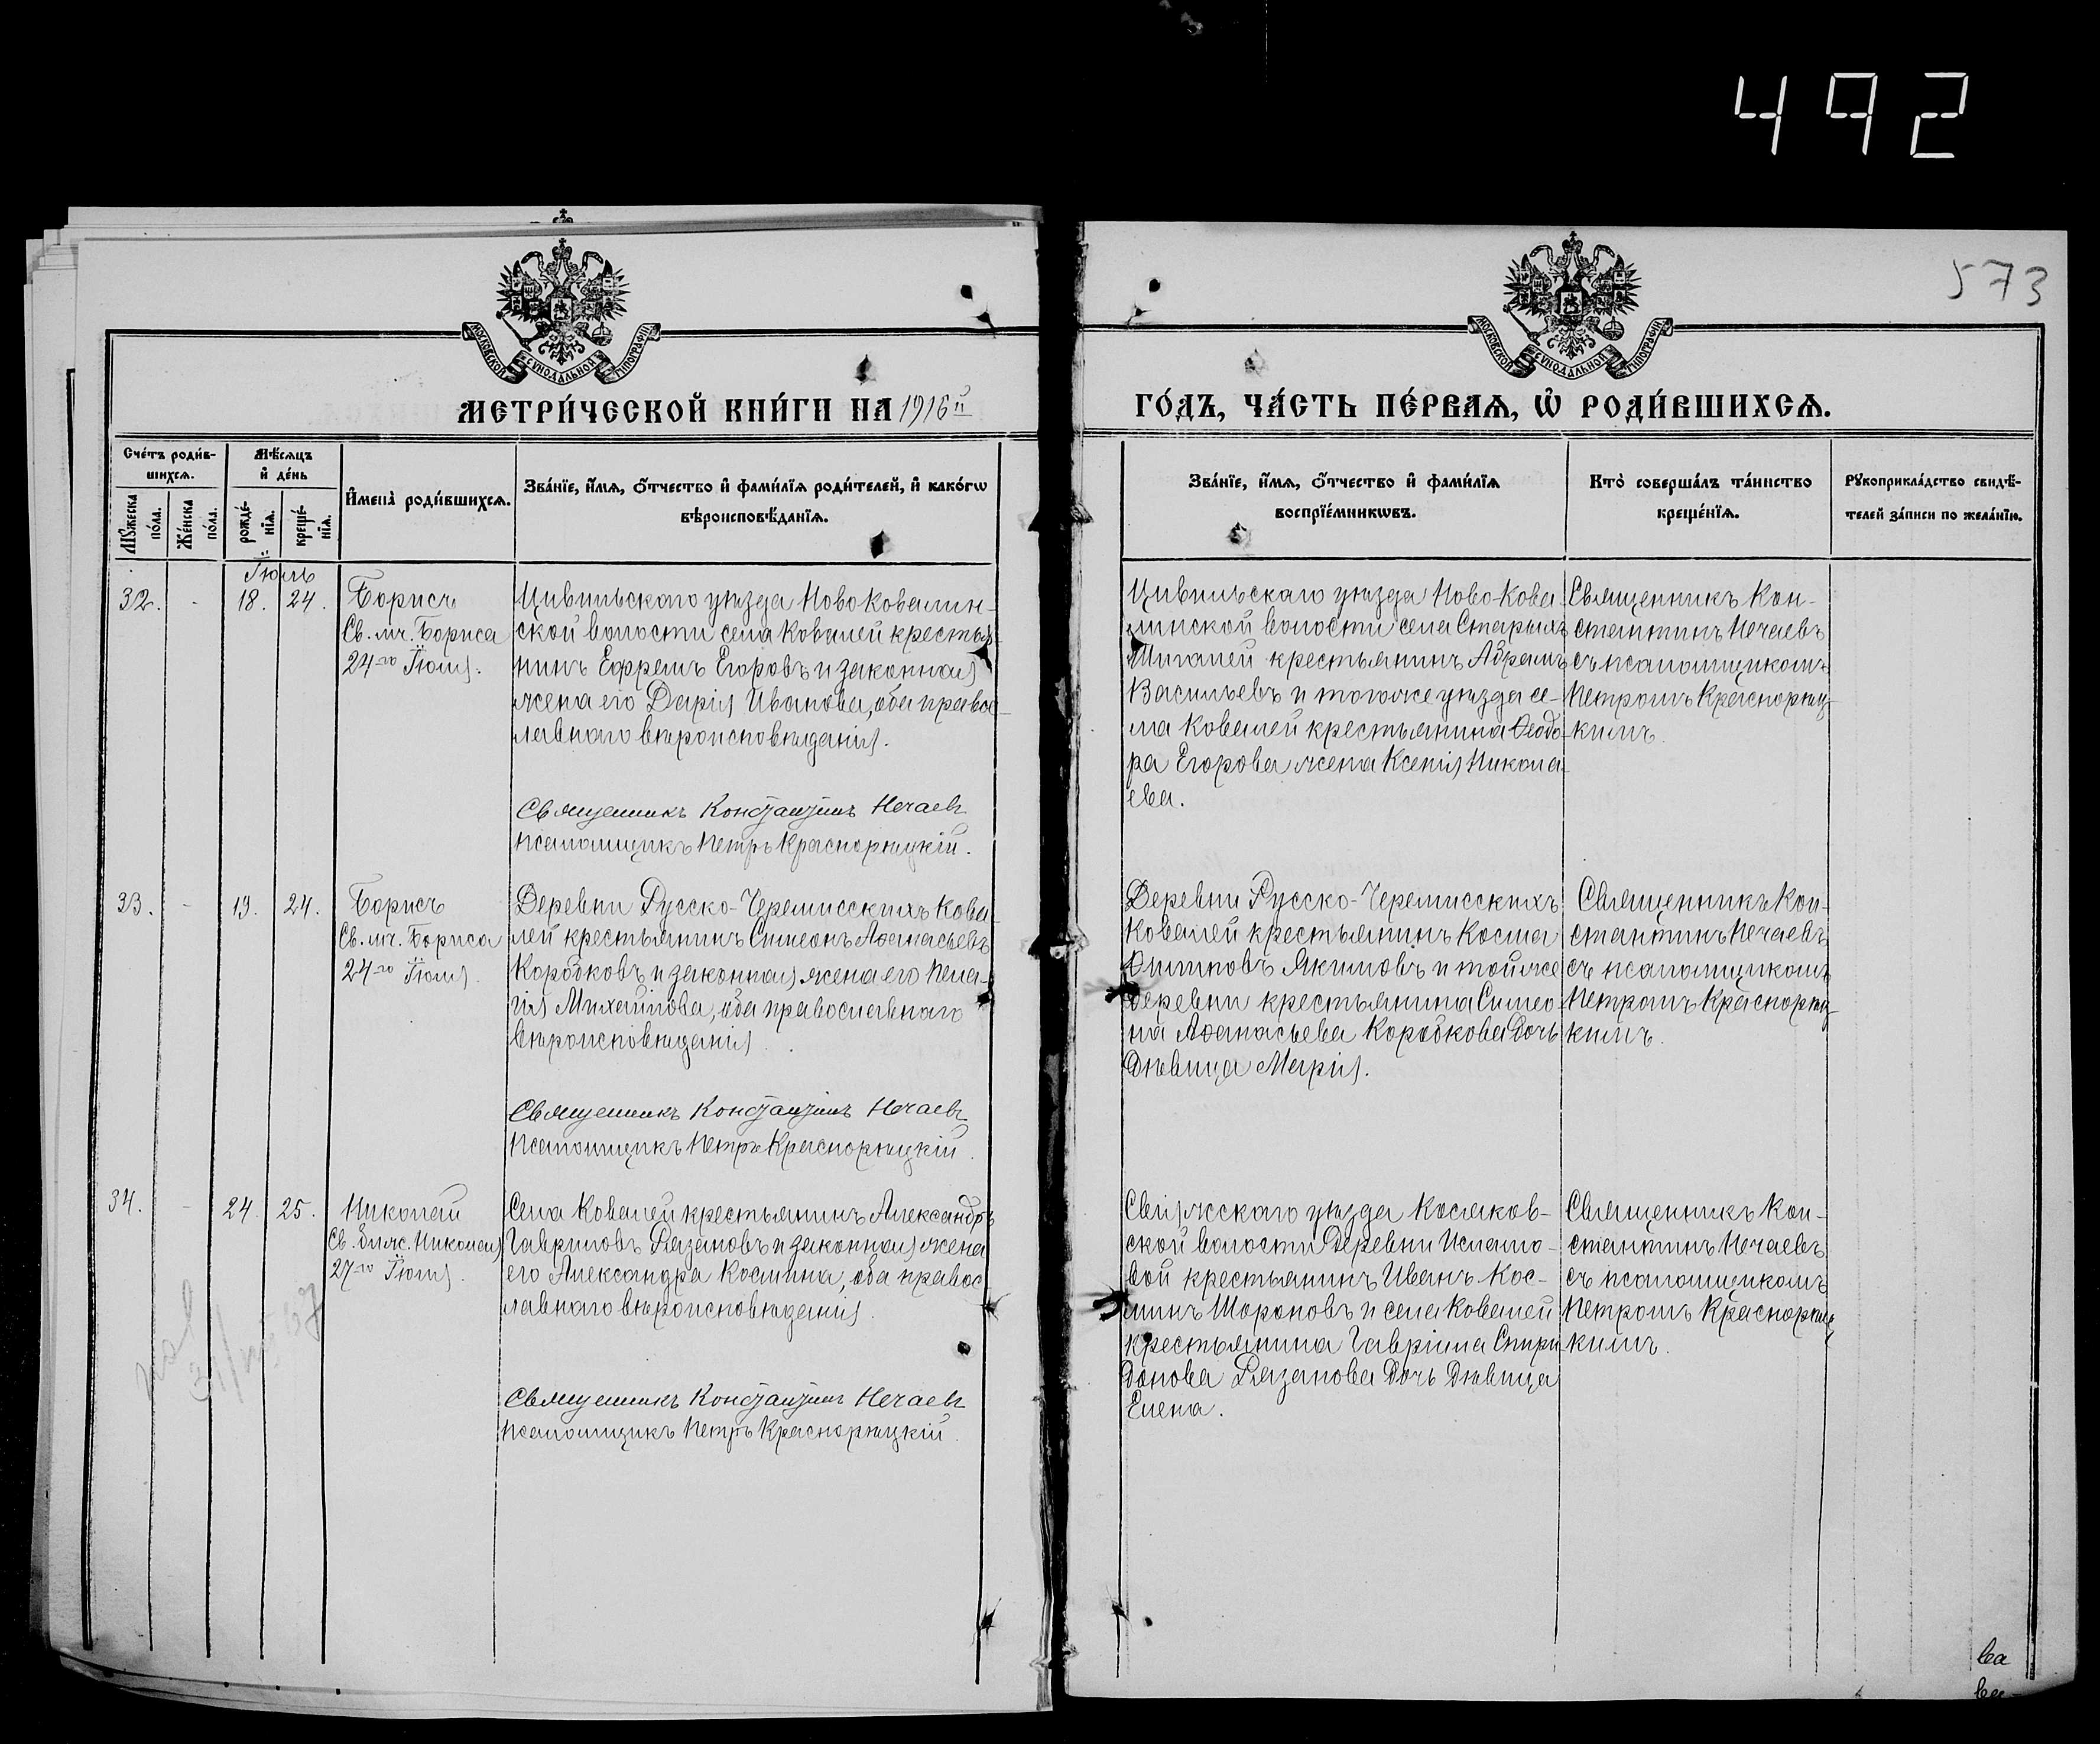 492
573
МОСКОВСКОЙ СѴНОДАЛЬНОЙ ТИПОГРАФІИ
МОСКОВСКОЙ СѴНОДАЛЬНОЙ ТИПОГРАФІИ
МЕТРИ́ЧЕСКОЙ КНИ́ГИ НА 1916й
ГО́ДЪ, ЧА́СТЬ ПЕ́РВАѦ, Ѽ РОДИ́ВШИХСѦ.
Сче́тъ роди́в-
шихсѧ.
Мѣ́сѧцъ
и҆ де́нь
Мꙋ́жеска по́ла.
Же́нска по́ла.
рожде́-
нїѧ.
креще́-
нїѧ.
И҆мена̀ роди́вшихсѧ.
Зва́нїе, и҆́мѧ, ѻ҆́тчество и҆ фами́лїѧ роди́телей, и҆ како́гѡ
вѣроисповѣ́данїѧ.
Зва́нїе, и҆́мѧ, ѻ҆́тчество и҆ фами́лїѧ
воспрїе́мникѡвъ.
Кто̀ соверша́лъ та́инство
креще́нїѧ.
Рꙋкоприкла́дство свидѣ́-
телей за́писи по жела́нїю.
Іюль
32. - 18. 24.
Борисъ
Св. мч. Бориса
24-го Іюля.
Цивильскаго уѣзда Ново Ковалин-
ской волости села Ковалей крестья-
нинъ Ефремъ Егоровъ и законная
жена его Дарія Иванова, оба правос-
лавнаго вѣроисповѣданія.
Священникъ Константинъ Нечаевъ
Псаломщикъ Петръ Краснорѣцкій.
Цивильскаго уѣзда Ново-Кова-
линской волости села Старыхъ
крестьянинъ Абрамъ
Васильевъ и того же уѣзда се-
ла Ковалей крестьянина Ѳеодо-
ра Егорова жена Ксенія Никола-
ева.
Священникъ Кон-
стантинъ Нечаевъ
съ псаломщикомъ
Петромъ Краснорѣц-
кимъ.
33. - 19. 24.
Борисъ
Св. мч. Бориса
24-го Іюля.
Деревни Русско-Черемисскихъ Кова-
лей крестьянинъ Симеонъ Аѳанасьевъ
Коробковъ и законная жена его Пела-
гія Михайлова, оба православнаго
вѣроисповѣданія.
Священникъ Константинъ Нечаевъ
Псаломщикъ Петръ Краснорѣцкій.
Деревни Русско-Черемисскихъ
Ковалей крестьянинъ Косма
Якимовъ и той же
деревни крестьянина Симео-
на Аѳанасьева Коробкова дочь
дѣвица Марія.
Священникъ Кон-
стантинъ Нечаевъ
съ псаломщикомъ
Петромъ Краснорѣц-
кимъ.
34. - 24. 25.
Николай
Св. блаж. Николая
27-го Іюля.
Села Ковалей крестьянинъ Александръ
Гавриловъ Рязановъ и законная жена
его Александра Космина, оба правос-
лавнаго вѣроисповѣданія.
Священникъ Константинъ Нечаевъ
Псаломщикъ Петръ Краснорѣцкій.
Свіяжскаго уѣзда Косяков-
ской волости деревни Исламо-
вой крестьянинъ Иванъ Кос-
минъ Шороновъ и села Ковалей
крестьянина Гавріила Спири-
донова Рязанова дочь дѣвица
Елена.
Священникъ Кон-
стантинъ Нечаевъ
съ псаломщикомъ
Петромъ Краснорѣц-
кимъ.
ва